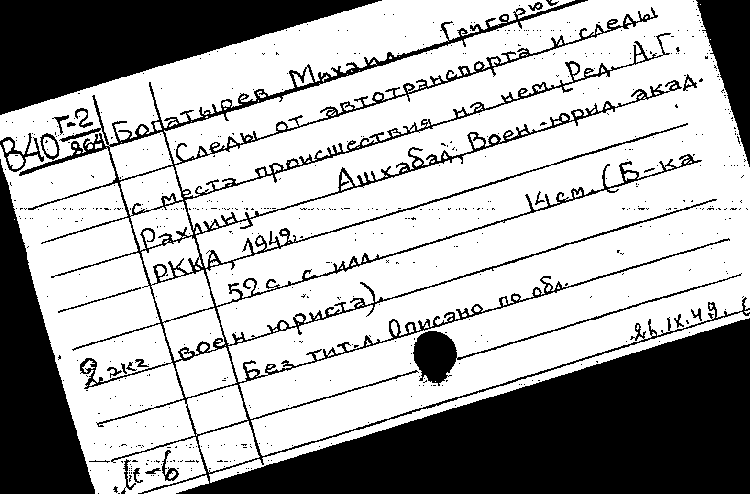 Богатырев, Михаил Григорье
В40 Г-2
864
Следы от автотранспорта и следы
с места происшествия на нем. [Ред. А.Г.
Рахлин]. Ашхабад, Воен.-юрид. акад.
РККА, 1942.
52 с. с илл. 14 см. (Б-ка
воен. юриста).
2 экз
Без тит. л. Описано по обл.
26.IX.49.
М-6